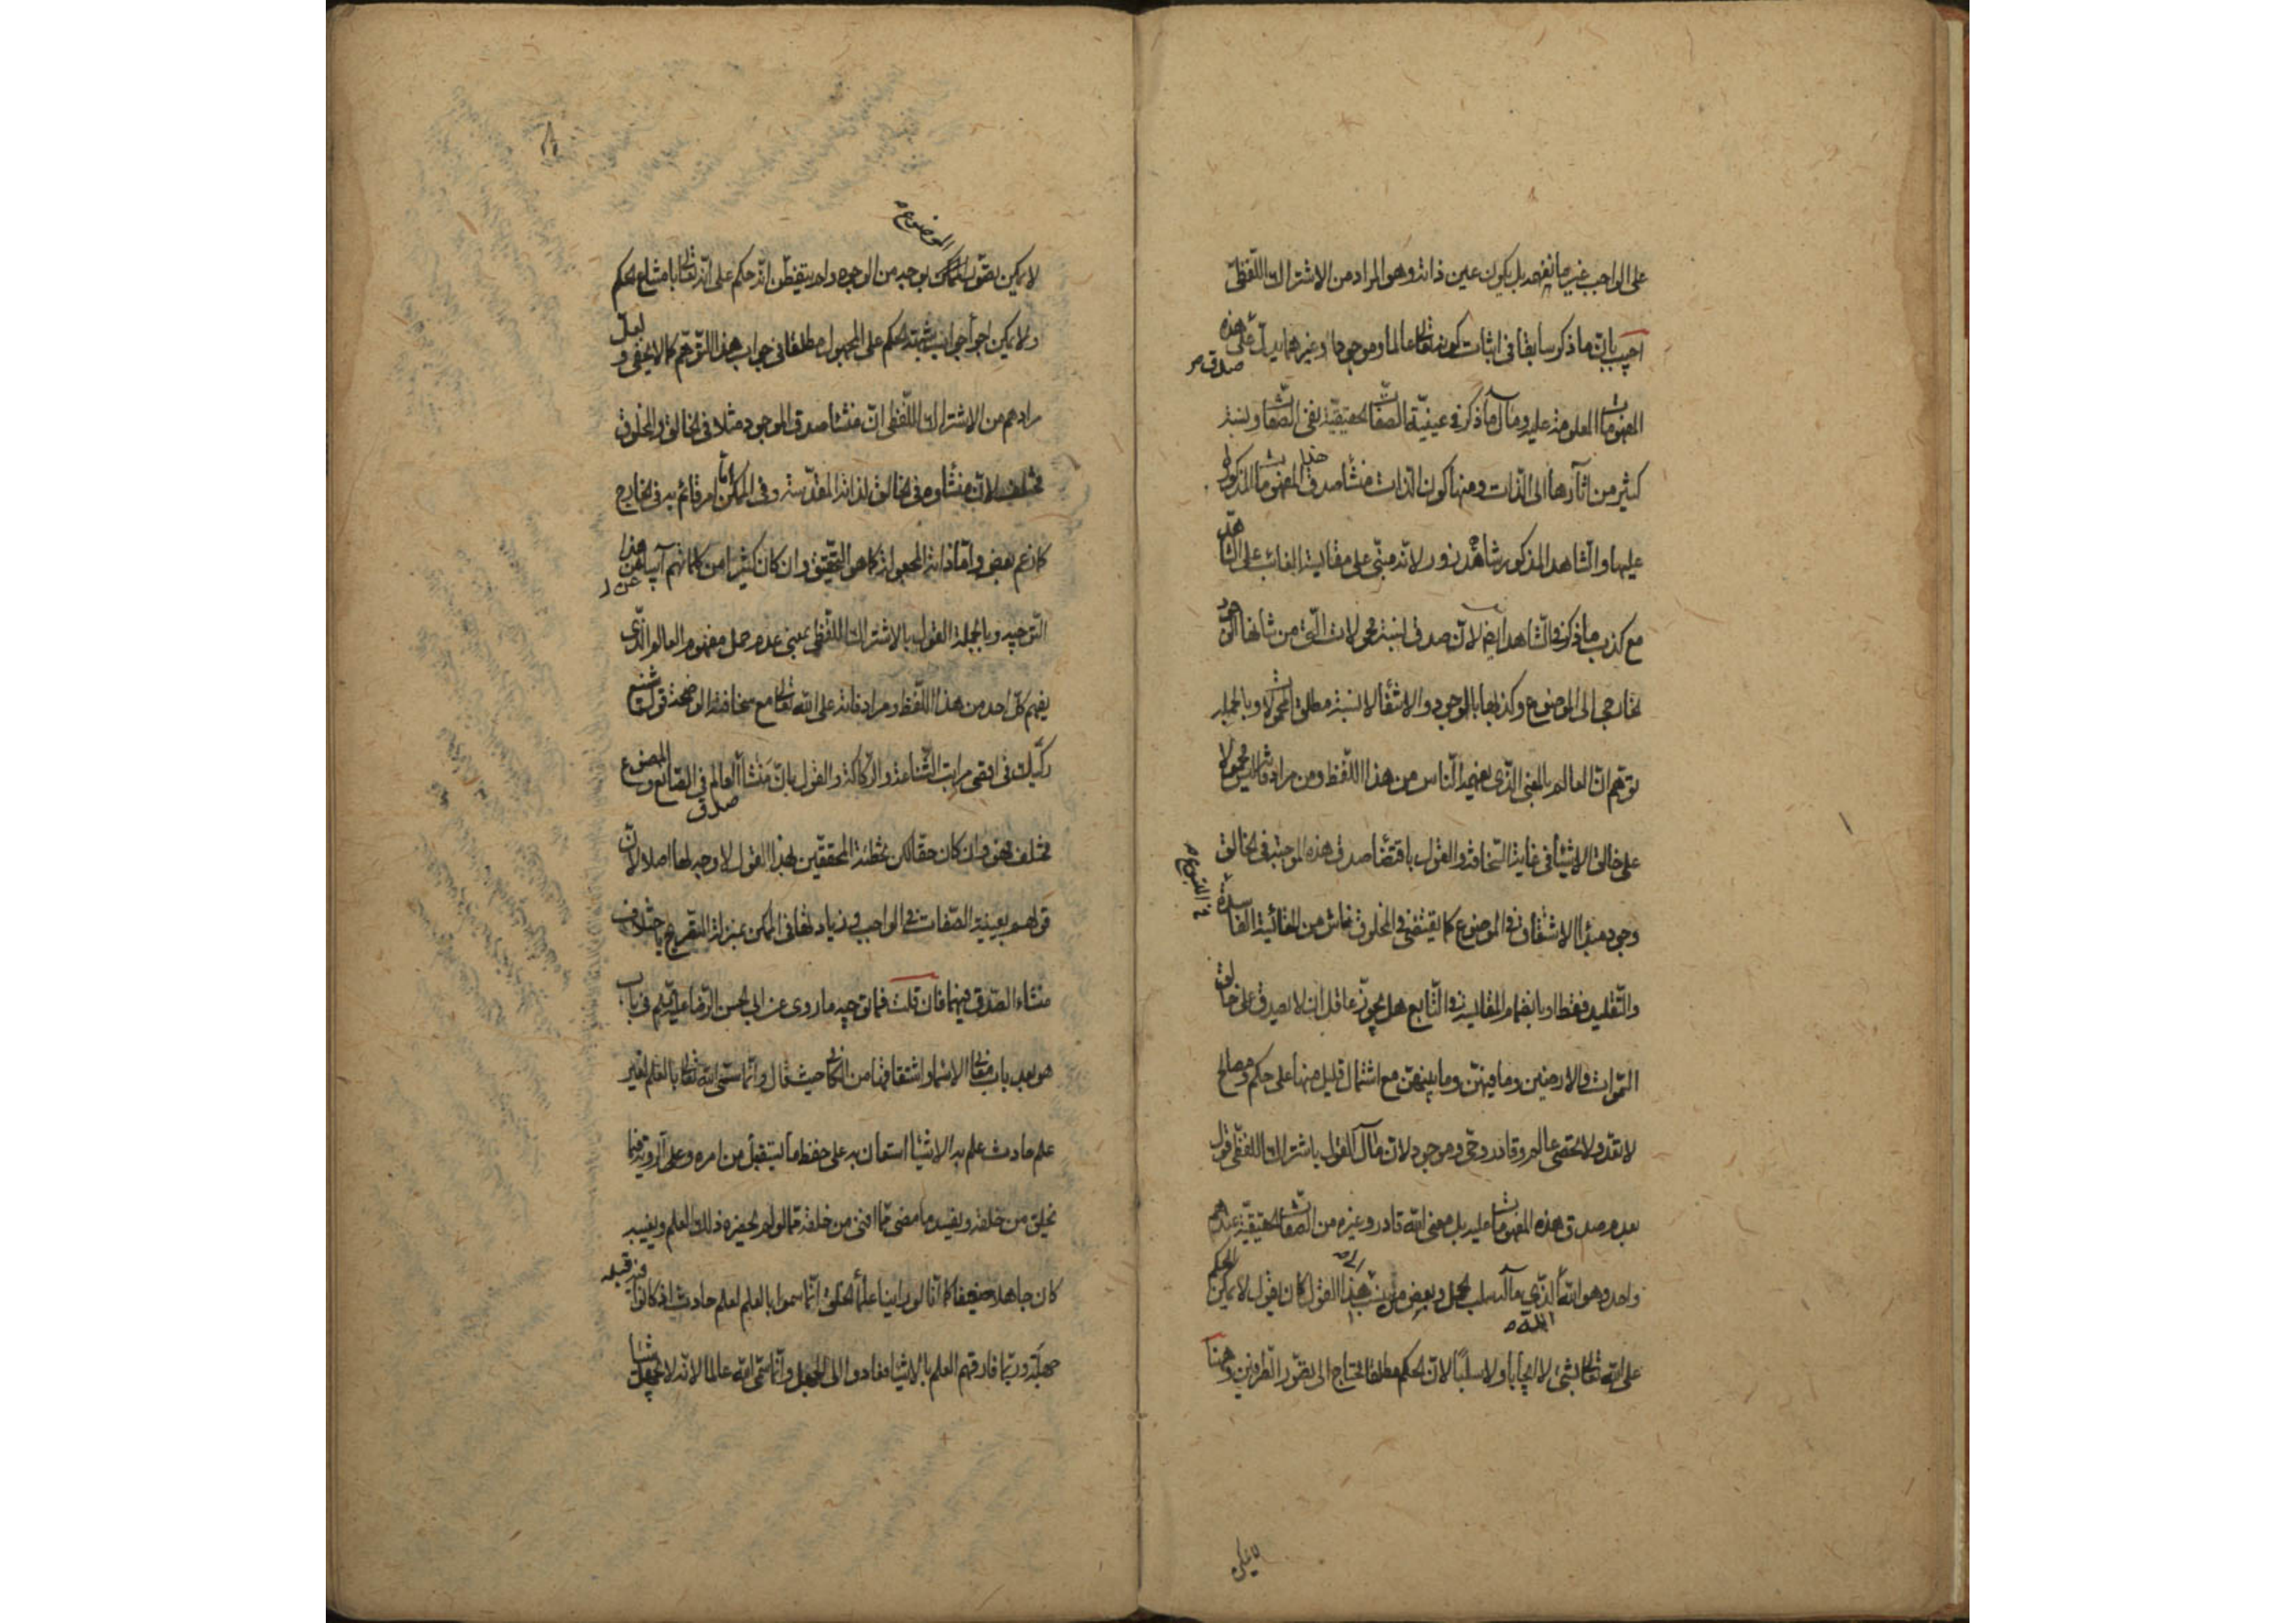 على الواجب غير ما نفهمه بل يكون عين ذاته وهو المراد من الاشتراك اللفظى
اجيب بان ما ذكر سابقا فى اثبات كونه تعالى عالما وموجودا وغيرهما يدل على صدق هذه
المفهومات المعلومة عليه ومآل ما ذكر فى عينية الصفات الحقيقية نفى الصفات ونسبة
كثير من آثارها الى الذات ومنها كون الذات منشأ صدق هذه المفهومات المذكورة
عليها والشاهد المذكور شاهد زور لانه مبنى على مقايسة الغائب على الشاهد
مع كذب ما ذكر فى الشاهد ايضا لان صدق نسبة محمولات التى من شانها الوجود
الخارجى الى الموضوع وكذبها بالوجود والانتفاء لا نسبة مطلق المحمولات وبالجملة
توهم ان العالم بالمعنى الذى يفهمه الناس من هذا اللفظ ومن مرادفاته ليس محمولا
على خالق الاشياء فى غاية السخافة والقول باقتضاء صدق هذه الموجبة فى الخالق
وجود مبدأ الاشتقاق فى الموضوع كما يقتضى فى المخلوق ناش من المقايسة الفاسدة
والتقليد فقط او بانضمام المقايسة والتابع هل يجوز عاقل ان لا يصدق على خالق
السموات والارضين وما فيهن وما بينهن مع اشتمال قليل منها على حكم ومصالح
لا تعد ولا تحصى عالم وقادر وحى وموجود لان مآل القول باشتراك اللفظى قول
بعدم صدق هذه المفهومات عليه بل معنى الله قادر وغيره من الصفات الحقيقية عندهم
واحد وهو الله الذى مآله سلب الجهل وبعض من ينسب اليه هذا القول كان يقول لا يمكن الحكم
على الله تعالى بشئ لا ايجابا ولا سلبا لان الحكم مطلقا يحتاج الى تصور الطرفين وههنا
لا يمكن
لا يمكن تصور الموضوع بوجه من الوجوه ولم يتفطن انه حكم على الله تعالى بامتناع الحكم
ولا يمكن اجراء جواب شبهة الحكم على المجهول مطلقا فى جواب هذا التوهم كما لا يخفى ولعل
مرادهم من الاشتراك اللفظى ان منشأ صدق الموجود مثلا فى الخالق والمخلوق
مختلف لان منشأه فى الخالق لذاته المقدسة وفى الممكن اما امر قائم به فى الخارج
كما زعم بعض واما ذاته المجعولة كما هو التحقيق وان كان كثيرا من كلماتهم آبيا عن هذا
التوجيه وبالجملة القول بالاشتراك اللفظى بمعنى عدم حمل مفهوم العالم الذى
يفهم كل احد من هذا اللفظ ومرادفاته على الله تعالى مع سخافته الواضحة قول شنيع
ركيك فى اقصى مراتب الشناعة والركاكة والقول بان منشأ صدق العالم فى الصانع والمصنوع
مختلف فهو وان كان حقا لكن تخطئة المحققين لهذا القول لا وجه لها اصلا لان
قولهم بعينية الصفات فى الواجب وزيادتها فى الممكن بمنزلة التصريح باختلاف
منشاء الصدق فيهما فان قلت فما توجيه ما روى عن ابى الحسن الرضا عليه السلام فى باب
هو بعد باب معانى الاسماء واشتقاقها من الكافى حيث قال وانما سمى الله تعالى بالعلم لغير
علم حادث علم به الاشياء استعان به على حفظ ما يستقبل من امره وعلى الروية فيما
يخلق من خلقه ويفسد ما مضى مما افنى من خلقه مما لو لم يحضره ذلك العلم ويغيبه
كان جاهلا ضعيفا كما انا لو راينا علماء الخلق انما سموا بالعلم لعلم حادث اذ كانوا فيه قبله
جهلة وربما فارقهم العلم بالاشياء فعادوا الى الجهل وانما سمى الله عالما لانه لا يجهل شيئا